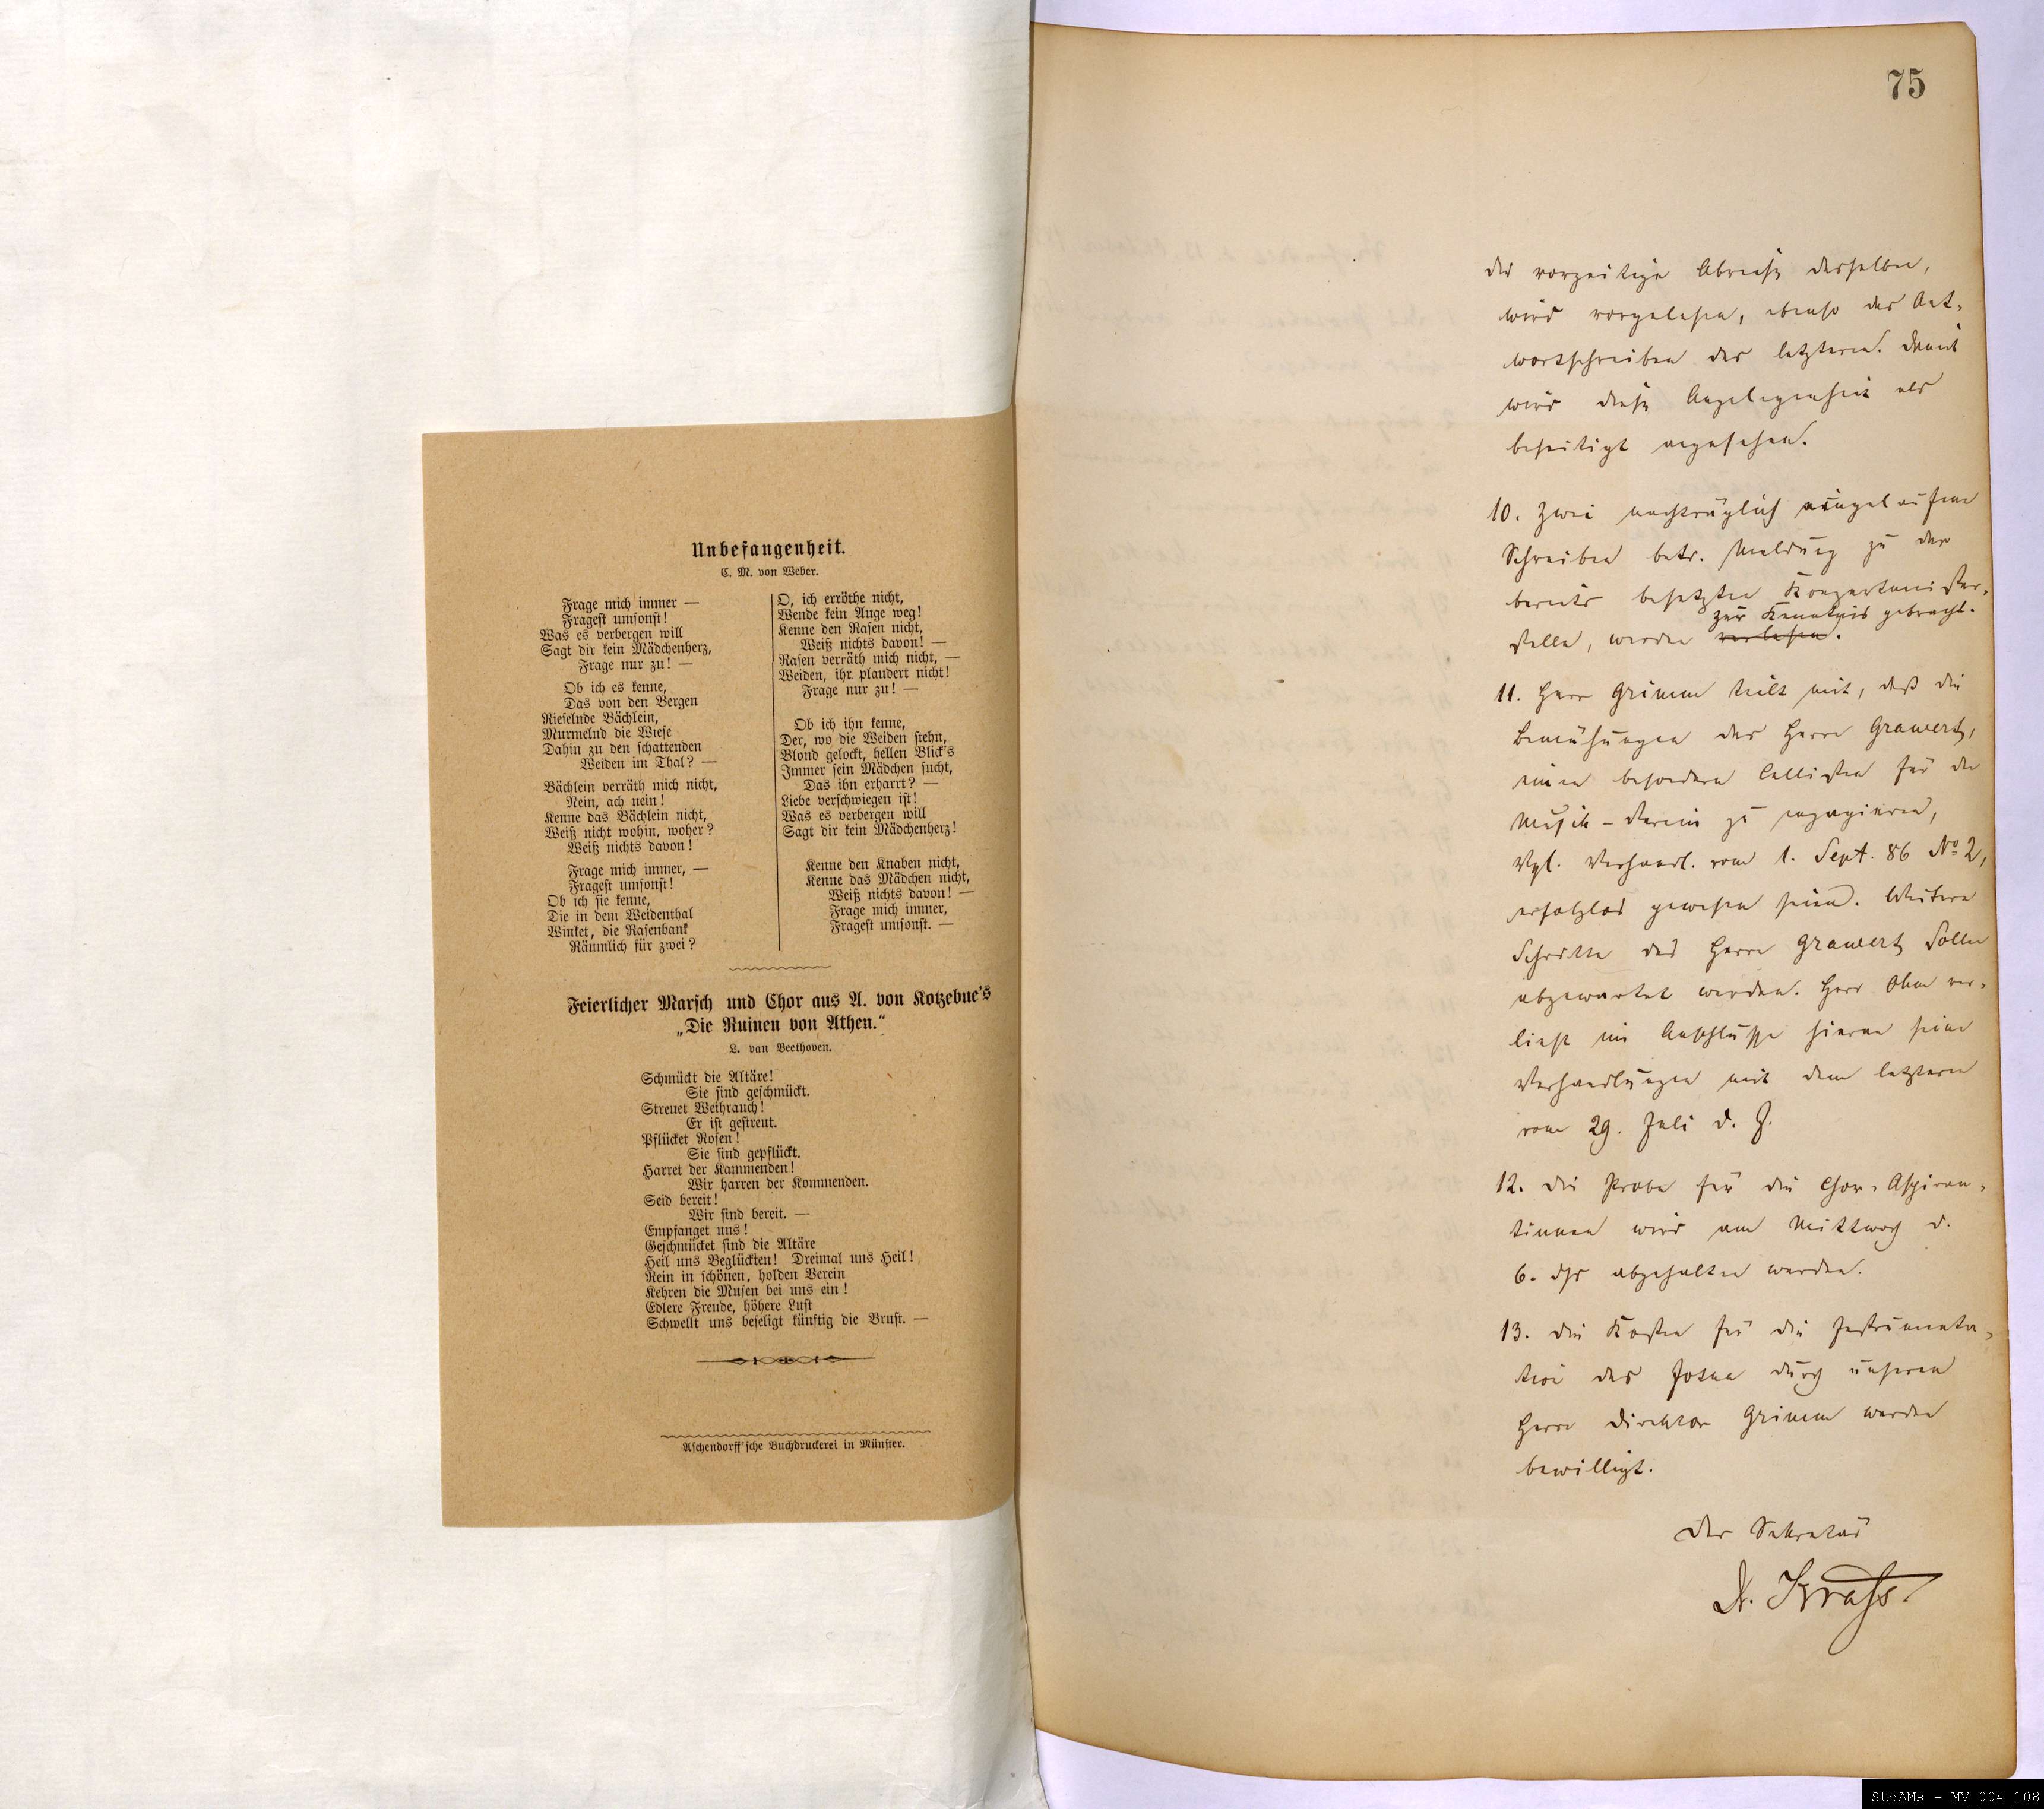 Unbefangenheit.
C. M. von Weber.
Frage mich immer —
Fragest umsonst!
Was es verbergen will
Sagt dir kein Mädchenherz,
Frage nur zu! —
Ob ich es kenne,
Das von den Bergen
Rieselnde Bächlein,
Murmelnd die Wiese
Dahin zu den schattenden
Weiden im Thal? —
Bächlein verräth mich nicht,
Nein, ach nein!
Kenne das Bächlein nicht,
Weiß nicht wohin, woher?
Weiß nichts davon!
Frage mich immer, —
Fragest umsonst!
Ob ich sie kenne,
Die in dem Weidenthal
Winket, die Rasenbank
Räumlich für zwei?
O, ich erröthe nicht,
Wende kein Auge weg!
Kenne den Rasen nicht,
Weiß nichts davon! —
Rasen verräth mich nicht, —
Weiden, ihr plaudert nicht!
Frage nur zu! —
Ob ich ihn kenne,
Der, wo die Weiden stehn,
Blond gelockt, hellen Blick's
Immer sein Mädchen sucht,
Das ihn erharrt? —
Liebe verschwiegen ist!
Was es verbergen will
Sagt dir kein Mädchenherz!
Kenne den Knaben nicht,
Kenne das Mädchen nicht,
Weiß nichts davon! —
Frage mich immer,
Fragest umsonst. —
Feierlicher Marsch und Chor aus A. von Kotzebue's
„Die Ruinen von Athen.“
L. van Beethoven.
Schmückt die Altäre!
Sie sind geschmückt.
Streuet Weihrauch!
Er ist gestreut.
Pflücket Rosen!
Sie sind gepflückt.
Harret der Kammenden!
Wir harren der Kommenden.
Seid bereit!
Wir sind bereit. —
Empfanget uns!
Geschmücket sind die Altäre
Heil uns Beglückten! Dreimal uns Heil!
Rein in schönen, holden Verein
Kehren die Musen bei uns ein!
Edlere Freude, höhere Lust
Schwellt uns beseligt künftig die Brust. —
Aschendorff'sche Buchdruckerei in Münster.
75
der vorzeitige Abreise desselben,
wird vorgelesen, ebenso das Ant-
wortschreiben des letztern. Damit
wird diese Angelegenheit als
beseitigt angesehen.
10. Zwei nachträglich eingelaufene
Schreiben betr. Meldung zu der
bereits besetzten Konzertmeister-
zur Kenntnis gebracht.
stelle, werden verlesen.
11. Herr Grimm teilt mit, daß die
Bemühungen des Herrn Grawert,
einen besondern Cellisten für den
Musik-Verein zu engagieren,
Vgl. Verhandl. vom 1. Sept. 86 No 2,
erfolglos gewesen seien. Weitere
Schritte des Herrn Grawert sollen
abgewartet werden. Herr Ohm ver-
liest im Anschlusse hieran seine
Verhandlungen mit dem letztern
vom 29. Juli d. J.
12. Die Probe für die Chor-Aspiran-
tinnen wird am Mittwoch d.
6. dſs abgehalten werden.
13. Die Kosten für die Instrumenta-
tion des Josua durch unseren
Herrn Direktor Grimm werden
bewilligt.
Der Sekretär
Dr. Krass.
StdAMs - MV_004_108